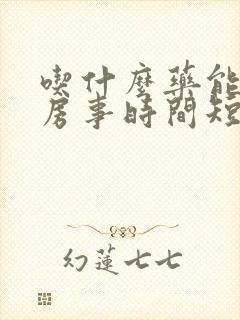 喫什麼藥能
房事時間短
幻蓮七七